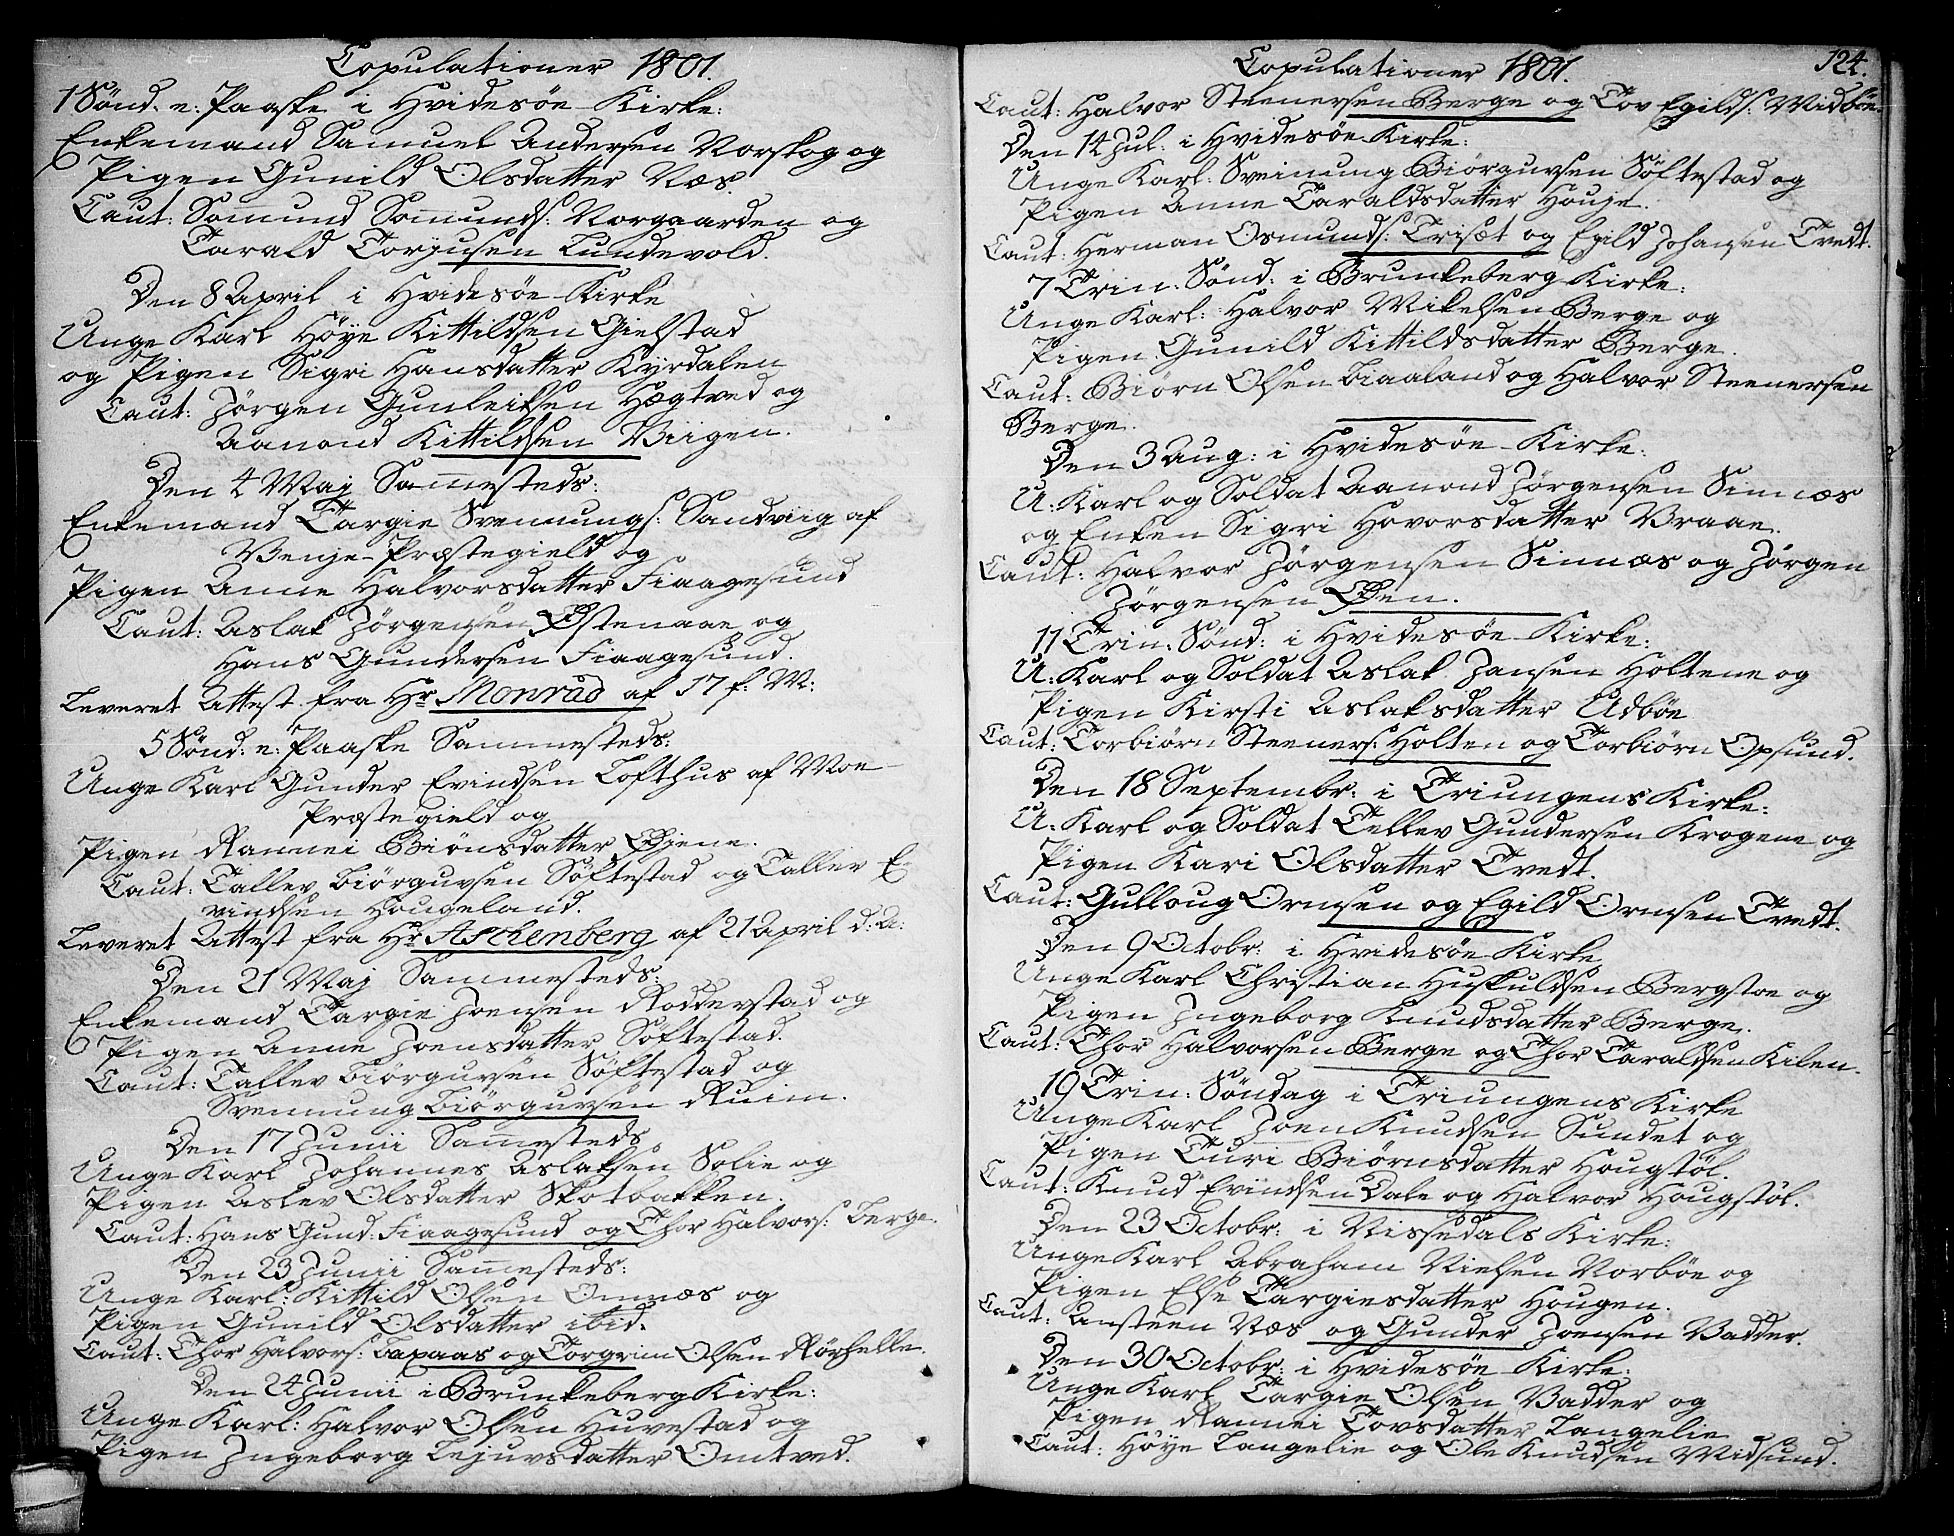 Copulationer 1801.
1 Sønd. e: Paaske i Hvidesøe Kirke:
Enkemand Samuel Andersen Norskog og
Pigen Gunild Olsdatter Næs.
Caut: Somund Somunds: Norgaarden og
Tarald Torjusen Lundevold.
Den 8 April i Hvidesøe Kirke
Unge Karl Høye Kittildsen Gielstad
og Pigen Sigri Hansdatter Kyrdalen
Caut: Jørgen Gunleiksen Hægtved og
Aanond Kittildsen Viigen.
Den 4 Maj Sammesteds:
Enkemand Targie Svennungs: Sandviig af
Venje Præstegield og
Pigen Anne Halvorsdatter Fiaagesund
Caut: Aslak Jørgensen Østenaae og
Hans Gundersen Fiaagesund.
Leveret Attest fra Hr Monrad af 17 f: M:
5 Sønd: e: Paaske Sammesteds:
Unge Karl Gunder Evindsen Lofthus af Moe
Præstegield og
Pigen Rannei Biønsdatter Øjene.
Caut: Tallev Biørguvsen Søftestad og Tallev E-
vindsen Hougeland.
Leveret Attest fra Hr Aschenberg af 21 April d: A:
Den 21 Maj Sammesteds:
Enkemand Targie Joensen Rodderstad og
Pigen Anne Joensdatter Søftestad.
Caut: Tallev Biørguvsen Søftestad og
Svennung Biørguvsen Ruim.
Den 17 Junii Sammesteds.
Unge Karl Johannes Aslaksen Solie og
Pigen Aslev Olsdatter Skotbakken.
Caut: Hans Gund: Fiaagesund og Thor Halvors: Berge.
Den 23 Junii Sammesteds:
Unge Karl: Kittild Olsen Omnæs og
Pigen Gunild Olsdatter ibid.
Caut: Thor Halvors: Baxaas og Torgrim Olsen Rørhelle.
Den 24 Junii i Brunkeberg Kirke:
Unge Karl: Halvor Olsen Huvestad og
Pigen Ingeborg Lejuvsdatter Omtved.
Copulationer 1801.
124.
Caut: Halvor Steenersen Berge og Tov Egilds: Midbøe.
Den 14 Jul: i Hvidesøe Kirke:
Unge Karl: Sveinung Biørguvsen Søftestad og
Pigen Anne Taraldsdatter Houje.
Caut: Herman Osmunds: Trisæt og Egild Johansen Tvedt.
7 Trin: Sønd: i Brunkeberg Kirke:
Unge Karl: Halvor Mikelsen Berge og
Pigen Gunild Kittildsdatter Berge.
Caut: Biørn Olsen Biaaland og Halvor Steenersen
Berge.
Den 3 Aug: i Hvidesøe Kirke:
U: Karl og Soldat Aanond Jørgensen Sinnæs
og Enken Sigri Hovorsdatter Braae.
Caut: Halvor Jørgensen Sinnæs og Jørgen
Jørgensen Øien.
11 Trin: Sønd: i Hvidesøe Kirke:
U: Karl og Soldat Aslak Jansen Holtene og
Pigen Kirsti Aslaksdatter Udbøe
Caut: Torbiørn Steeners: Holten og Torbiørn Opsund.
Den 18 Septembr: i Triungens Kirke:
U: Karl og Soldat Tellev Gundersen Krogene og
Pigen Kari Olsdatter Tvedt.
Caut: Gulloug Ormsen og Egild Ormsen Tvedt.
Den 9 Octobr: i Hvidesøe Kirke
Unge Karl Christian Huskuldsen Bergstoe og
Pigen Ingeborg Knudsdatter Berge.
Caut: Thor Halvorsen Berge og Thor Taraldsen Kilen.
19 Trin: Søndag i Triungens Kirke
Unge Karl Joen Knudsen Sundet og
Pigen Turi Biørnsdatter Hougstøl.
Caut: Knud Evindsen Dale og Halvor Hougstøl.
Den 23 Octobr: i Nissedals Kirke:
Unge Karl Abraham Nielsen Norbøe og
Pigen Else Targiesdatter Hougen.
Caut: Ansteen Næs og Gunder Joensen Vadder.
Den 30 Octobr: i Hvidesøe Kirke:
Unge Karl Targie Olsen Vadder og
Pigen Rannei Tovsdatter Langelie
Caut: Høye Langelie og Ole Knudsen Midsund.